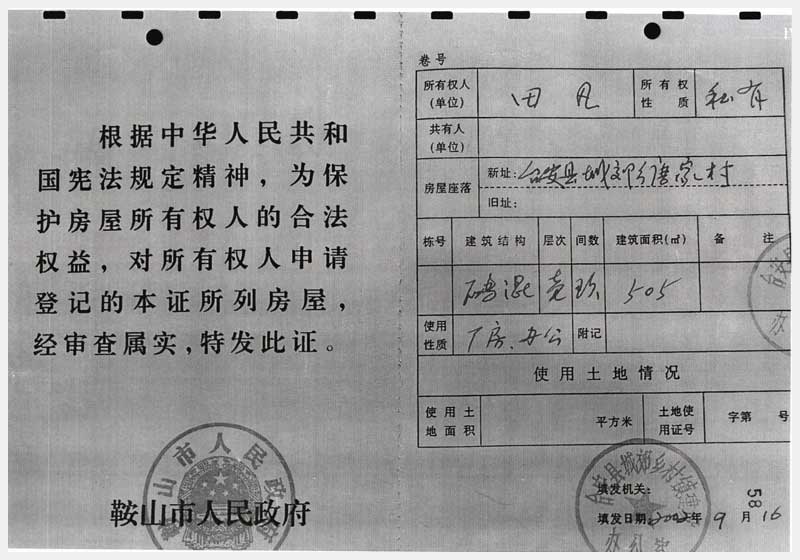 根据中华人民共和
国宪法规定精神，为保
护房屋所有权人的合法
权益，对所有权人申请
登记的本证所列房屋，
经审查属实，特发此证。
鞍山市人民政府
卷号
所有权人
(单位)
田凡
所有权
性质
私有
共有人
(单位)
房屋座落
新址：台安县城郊乡唐家村
旧址：
栋号 建筑结构 层次 间数 建筑面积(㎡) 备注
砖混 壹 玖 505
使用
性质
厂房、办公
附记
使用土地情况
使用土
地面积
平方米
土地使
用证号
字第 号
填发机关：
填发日期2002年9月16
58